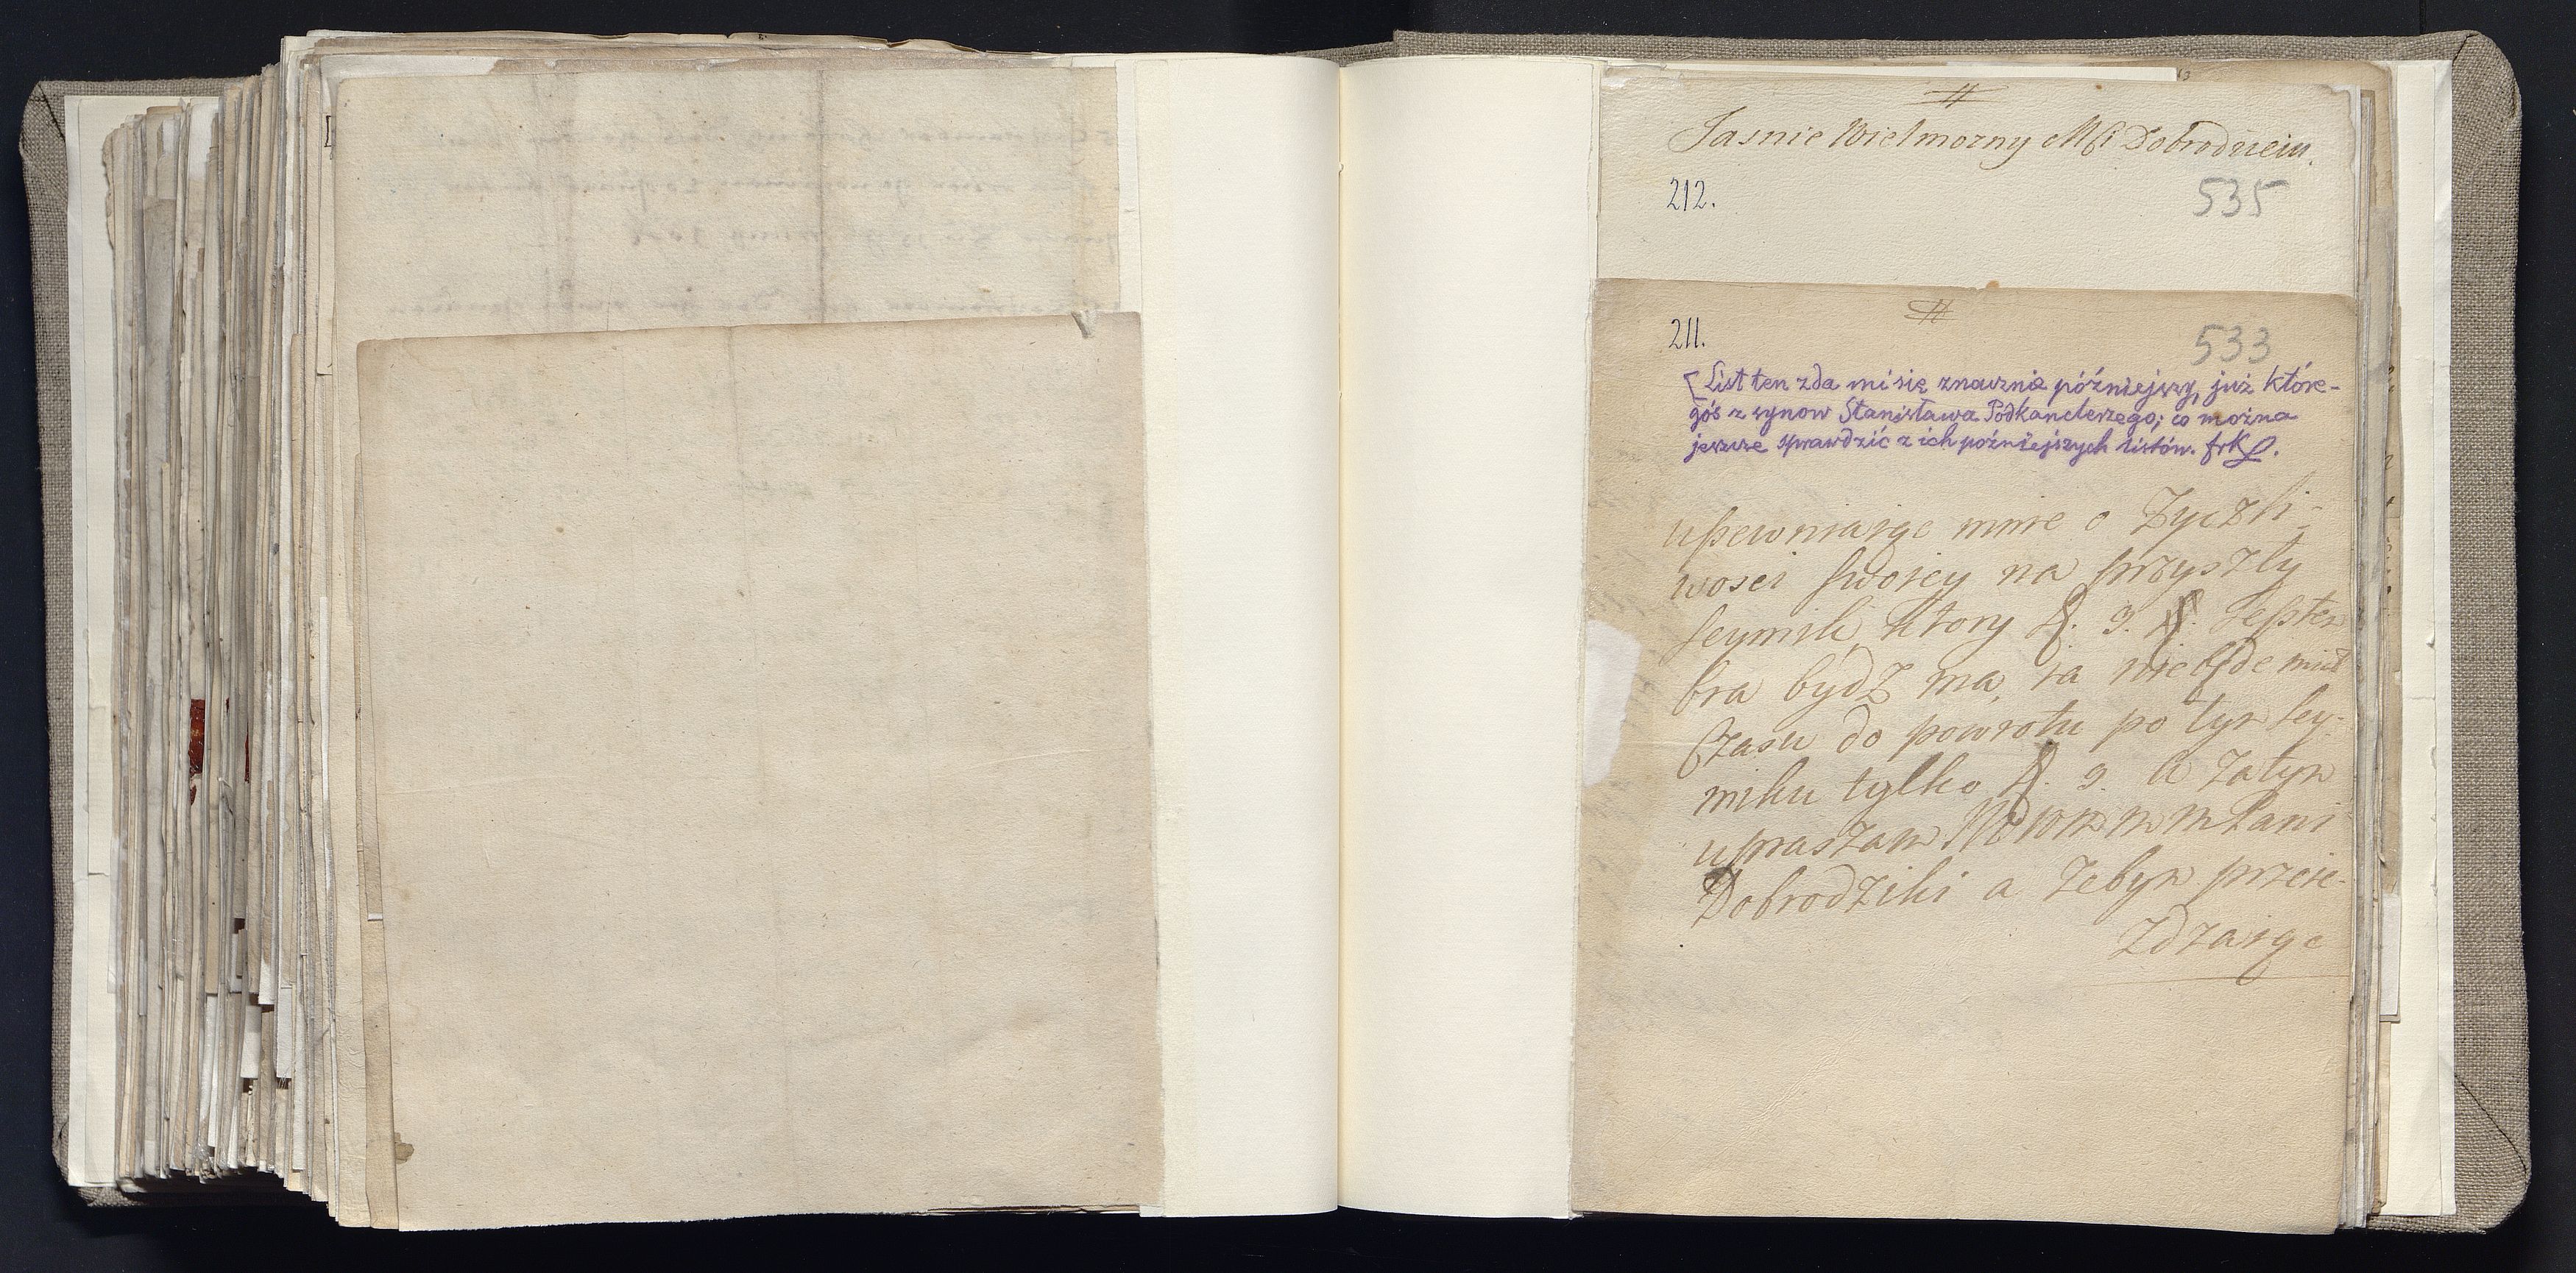 Jasnie Wielmozny Mći Dobrodzieiu.
212.
535
211.
533
[List ten zda mi się znacznie późniejszy, już które-
goś z synow Stanisława Podkanclerzego; co można
jeszcze sprawdzić z ich późniejszych listów. frK
upewniaiąc mnie o Zyczli-
wosci swoiey na przyszły
Seymik, ktory 9. Septem
bra bydz ma, ia nie będe miał
Czasu do powrotu po tym Sey-
miku tylko 9. A Zatym
upraszam WM Pani
Dobrodziki a Zebym przeie-
Zdzaiąc